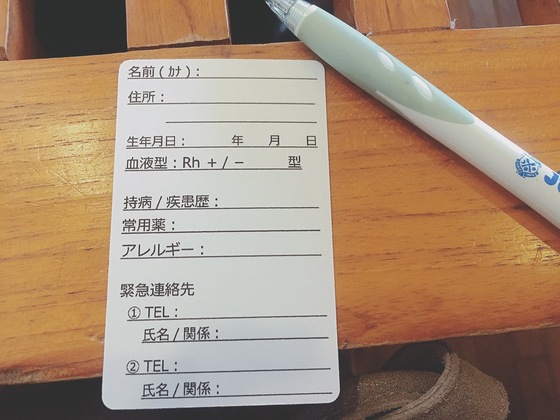 名前(ｶﾅ)：
住所：
生年月日：　　年　月　日
血液型：Rh ＋/－　　型
持病/疾患歴：
常用薬：
アレルギー：
緊急連絡先
①TEL：
氏名/関係：
②TEL：
氏名/関係：